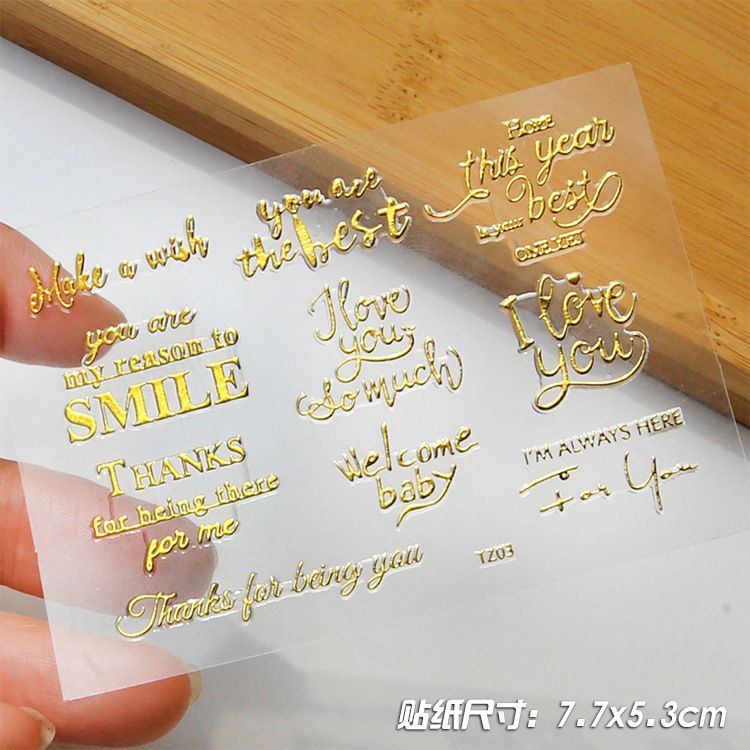 Make a wish
you are
the best
Hope
this year
best
ONE YET
you are
my reason to
SMILE
I love
you
(so much)
I love
you
THANKS
for being there
for me
Welcome
baby
I'M ALWAYS HERE
For You
Thanks for being you
TZ03
贴纸尺寸：7.7x5.3cm